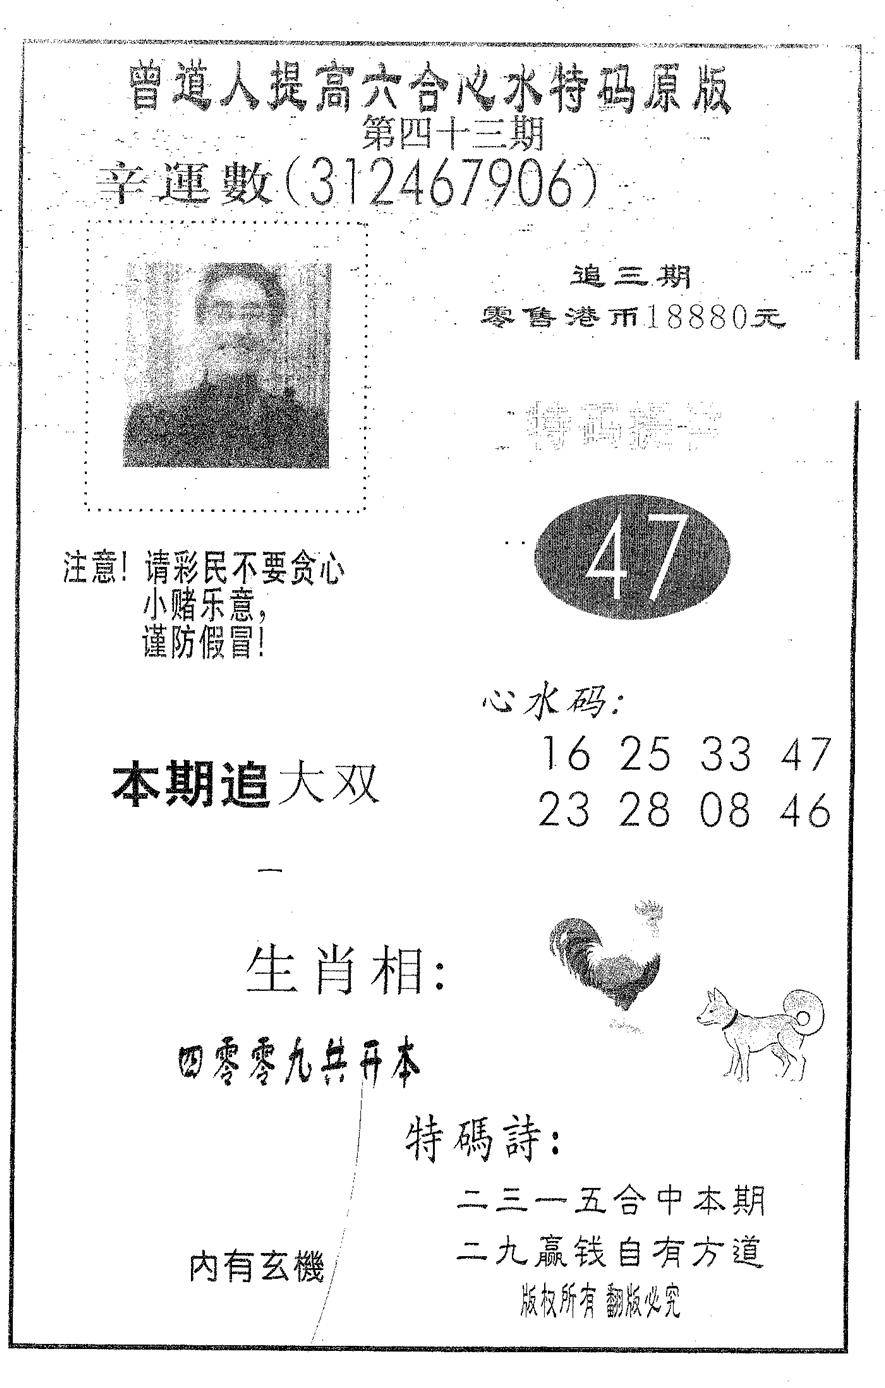 曾道人提高六合心水特码原版
第四十三期
辛運數(312467906)
追三期
零售港币18880元
特码提
47
注意! 请彩民不要贪心
小赌乐意,
谨防假冒!
心水码:
16 25 33 47
23 28 08 46
本期追大双
生肖相:
四零零九共开本
特碼詩:
二三一五合中本期
二九赢钱自有方道
内有玄機
版权所有 翻版必究